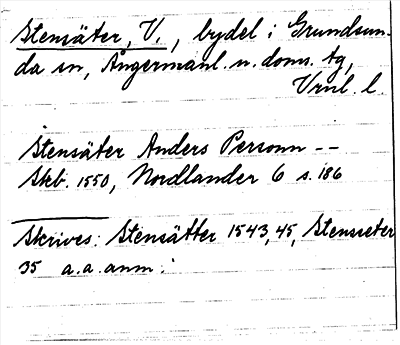 Stensäter, V., bydel i Grundsun-
da sn, Ångermanl. n. doms. tg,
Vrnl. l.
Stensäter Anders Personn --
Skb. 1550, Nordlander 6 s. 186
Skrives: Stensätter 1543, 45, Stensseter
35 a.a. anm.